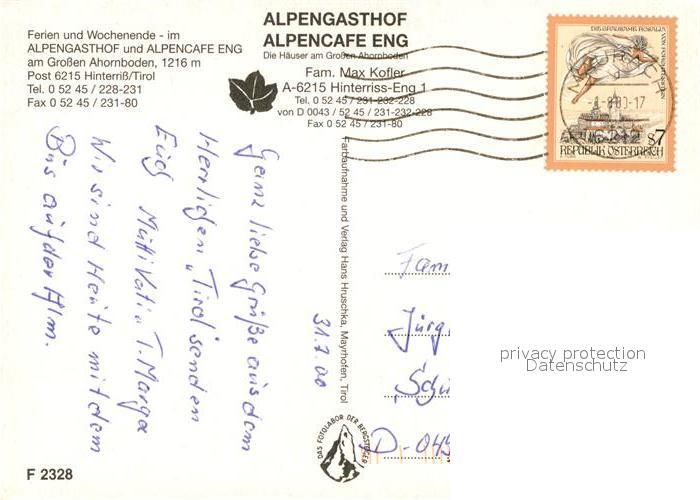 Ferien und Wochenende - im
ALPENGASTHOF und ALPENCAFE ENG
am Großen Ahornboden, 1216 m
Post 6215 Hinterriß/Tirol
Tel. 0 52 45 / 228-231
Fax 0 52 45 / 231-80
ALPENGASTHOF
ALPENCAFE ENG
Die Häuser am Großen Ahornboden
Fam. Max Kofler
A-6215 Hinterriss-Eng 1
Tel. 0 52 45 / 231-232-228
von D 0043 / 52 45 / 231-232-228
Fax 0 52 45 / 231-80
DIE GRAUSAME ROSALIA VON FORCHTENSTEIN
S7
REPUBLIK ÖSTERREICH
Ganz liebe Grüße aus dem
Herrlichen "Tirol" senden
Euch Mutti Vati u. T. Marga
Wir sind Heute mit dem
Bus auf der Alm.
31.7.00
Farbaufnahme und Verlag Hans Hruschka, Mayrhofen, Tirol
Fam
Jürg
Schu
D-049
privacy protection
Datenschutz
DAS FOTOLABOR DER BERGSTEIGER
F 2328